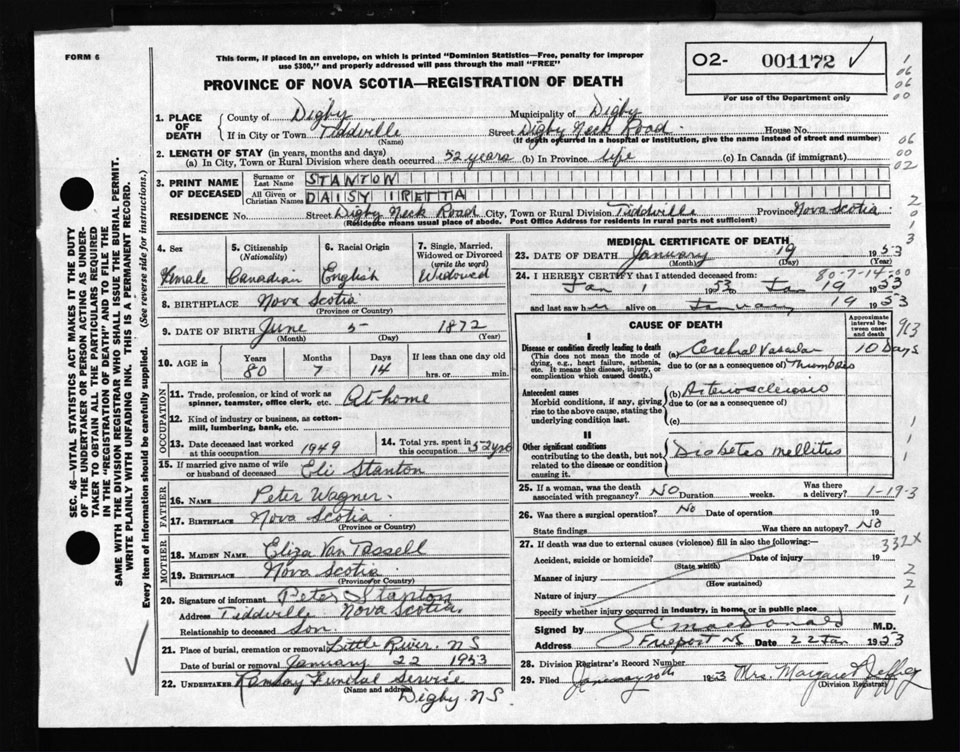 FORM 6
This form, if placed in an envelope, on which is printed "Dominion Statistics—Free, penalty for improper
use $300," and properly addressed will pass through the mail "FREE"
PROVINCE OF NOVA SCOTIA—REGISTRATION OF DEATH
02- 001172
For use of the Department only
1. PLACE OF DEATH County of Digby Municipality of Digby
If in City or Town Tiddville (Name) Street Digby Neck Road House No.
(If death occurred in a hospital or institution, give the name instead of street and number)
2. LENGTH OF STAY (in years, months and days)
(a) In City, Town or Rural Division where death occurred 52 years (b) In Province life (c) In Canada (if immigrant)
3. PRINT NAME OF DECEASED
Surname or Last Name STANTON
All Given or Christian Names DAISY IRETTA
RESIDENCE No. Street Digby Neck Road City, Town or Rural Division Tiddville Province Nova Scotia
(Residence means usual place of abode. Post Office Address for residents in rural parts not sufficient)
SEC. 46—VITAL STATISTICS ACT MAKES IT THE DUTY
OF THE UNDERTAKER OR PERSON ACTING AS UNDER-
TAKER TO OBTAIN ALL THE PARTICULARS REQUIRED
IN THE "REGISTRATION OF DEATH" AND TO FILE THE
SAME WITH THE DIVISION REGISTRAR WHO SHALL ISSUE THE BURIAL PERMIT.
WRITE PLAINLY WITH UNFADING INK. THIS IS A PERMANENT RECORD.
Every item of information should be carefully supplied. (See reverse side for instructions.)
4. Sex Female
5. Citizenship (Nationality) Canadian
6. Racial Origin English
7. Single, Married, Widowed or Divorced (write the word) Widowed
8. BIRTHPLACE Nova Scotia
(Province or Country)
9. DATE OF BIRTH June 5 1872
(Month) (Day) (Year)
10. AGE in Years 80 Months 7 Days 14 If less than one day old hrs. or min.
OCCUPATION
11. Trade, profession, or kind of work as spinner, teamster, office clerk, etc. At home
12. Kind of industry or business, as cotton-mill, lumbering, bank, etc.
13. Date deceased last worked at this occupation 1949
14. Total yrs. spent in this occupation 52 yrs
15. If married give name of wife or husband of deceased Eli Stanton
FATHER
16. NAME Peter Wagner
17. BIRTHPLACE Nova Scotia
(Province or Country)
MOTHER
18. MAIDEN NAME Eliza Van Tassell
19. BIRTHPLACE Nova Scotia
(Province or Country)
20. Signature of informant Peter Stanton
Address Tiddville Nova Scotia
Relationship to deceased Son
21. Place of burial, cremation or removal Little River, N S
Date of burial or removal January 22 1953
22. UNDERTAKER Ramsay Funeral Service
(Name and address)
Digby. N S
MEDICAL CERTIFICATE OF DEATH
23. DATE OF DEATH January 19 1953
(Month) (Day) (Year)
80-7-14-00
24. I HEREBY CERTIFY that I attended deceased from:
Jan 1 1953 to Jan 19 1953
and last saw her alive on January 19 1953
CAUSE OF DEATH
Approximate interval between onset and death
913
I
Disease or condition directly leading to death
(This does not mean the mode of dying, e.g., heart failure, asthenia, etc. It means the disease, injury, or complication which caused death.)
(a) Cerebral Vascular 10 Days
due to (or as a consequence of) Thrombosis
Antecedent causes
Morbid conditions, if any, giving rise to the above cause, stating the underlying condition last.
(b) Arteriosclerosis
due to (or as a consequence of)
(c)
II
Other significant conditions
contributing to the death, but not related to the disease or condition causing it.
Diabetes mellitus
25. If a woman, was the death associated with pregnancy? NO Duration weeks. Was there a delivery?
1-19-3
26. Was there a surgical operation? No Date of operation 19
State findings Was there an autopsy? No
27. If death was due to external causes (violence) fill in also the following:—
332X
Accident, suicide or homicide? (State which) Date of injury 19
Manner of injury (How sustained)
Nature of injury
Specify whether injury occurred in industry, in home, or in public place
Signed by MacDonald M.D.
Address Freeport NS Date 22 Jan 1953
28. Division Registrar's Record Number
29. Filed January 1953 Mrs. Margaret
(Division Registrar)